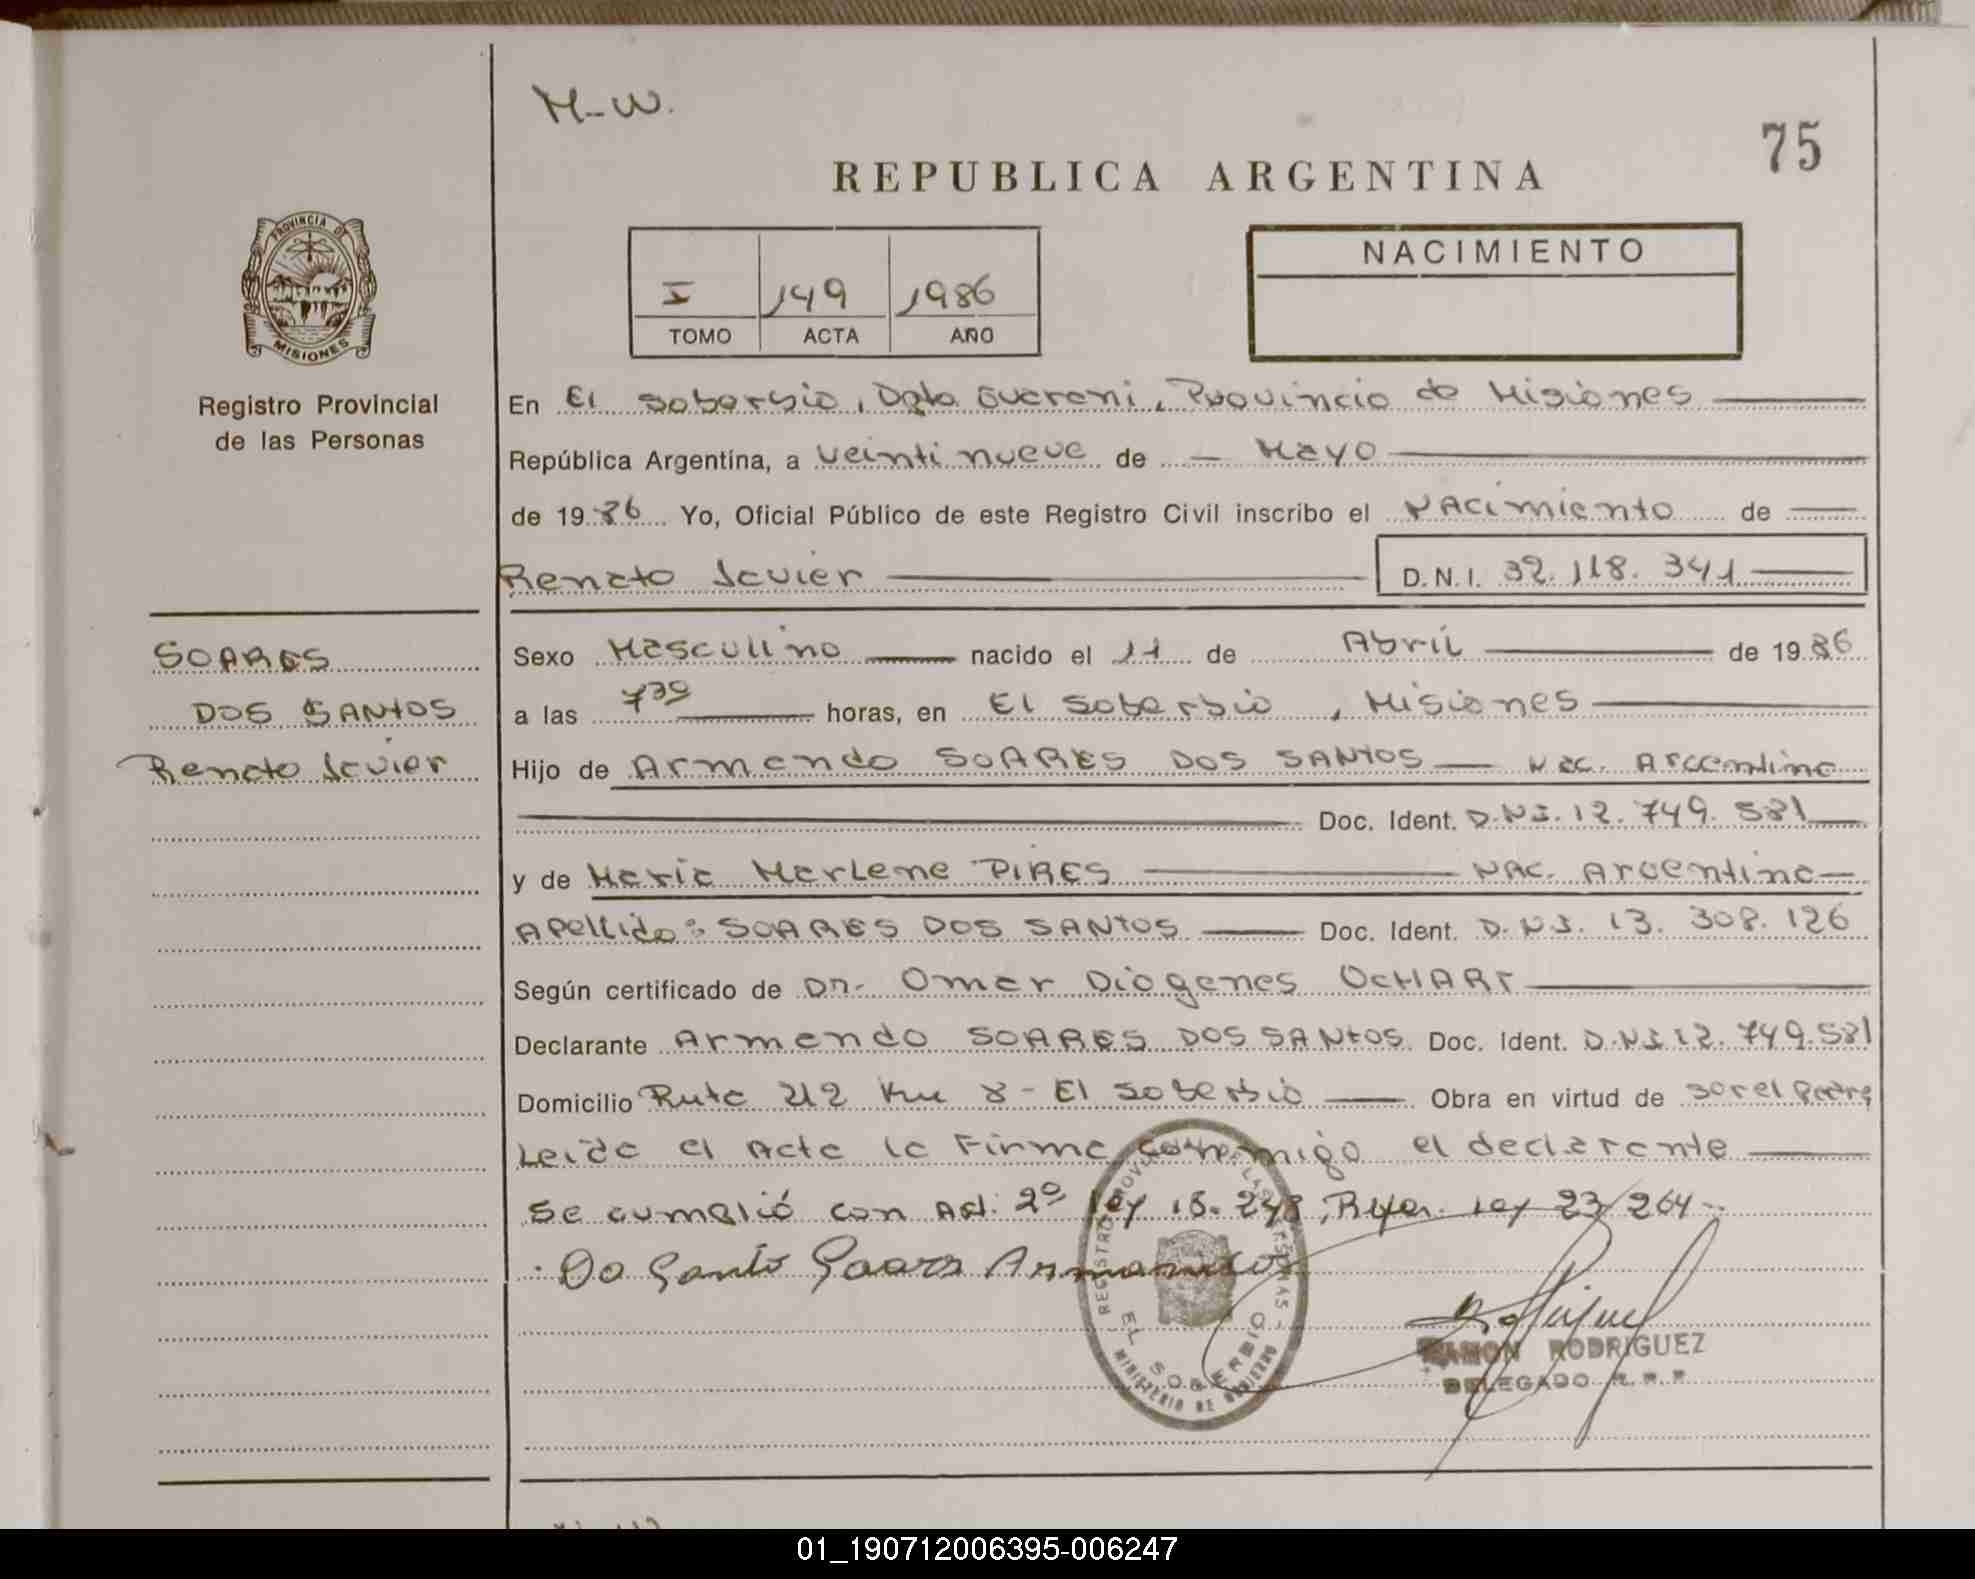 M-W.
75
REPUBLICA ARGENTINA
PROVINCIA DE
MISIONES
Registro Provincial
de las Personas
I 149 1986
TOMO ACTA AÑO
NACIMIENTO
En El Soberbio, Dpto. Guarani, Provincia de Misiones
República Argentina, a veinti nueve de - Mayo
de 1986 Yo, Oficial Público de este Registro Civil inscribo el Nacimiento de
Renato Javier D.N.I. 32.118.341
SOARES
DOS SANTOS
Renato Javier
Sexo Masculino nacido el 11 de Abril de 1986
a las 7 30 horas, en El Soberbio, Misiones
Hijo de Armando SOARES DOS SANTOS Nac. Argentina
Doc. Ident. D.N.I. 12.749.581
y de Maria Marlene PIRES NAC. Argentina
Apellido: SOARES DOS SANTOS Doc. Ident. D.N.I. 13.308.126
Según certificado de Dr. Omar Diogenes OCHART
Declarante Armando SOARES DOS SANTOS Doc. Ident. D.N.I 12.749.581
Domicilio Ruta 212 Km 8 - El Soberbio Obra en virtud de Ser el padre
Leida el Acta la Firma conmigo el declarante
Se cumplió con Art. 2º ley 18.248, Refer. ley 23/264-
Do Santo Soares Armando
EL SOBERBIO
MINISTERIO DE GOBIERNO
RAMON RODRIGUEZ
DELEGADO R.P.P
01_190712006395-006247